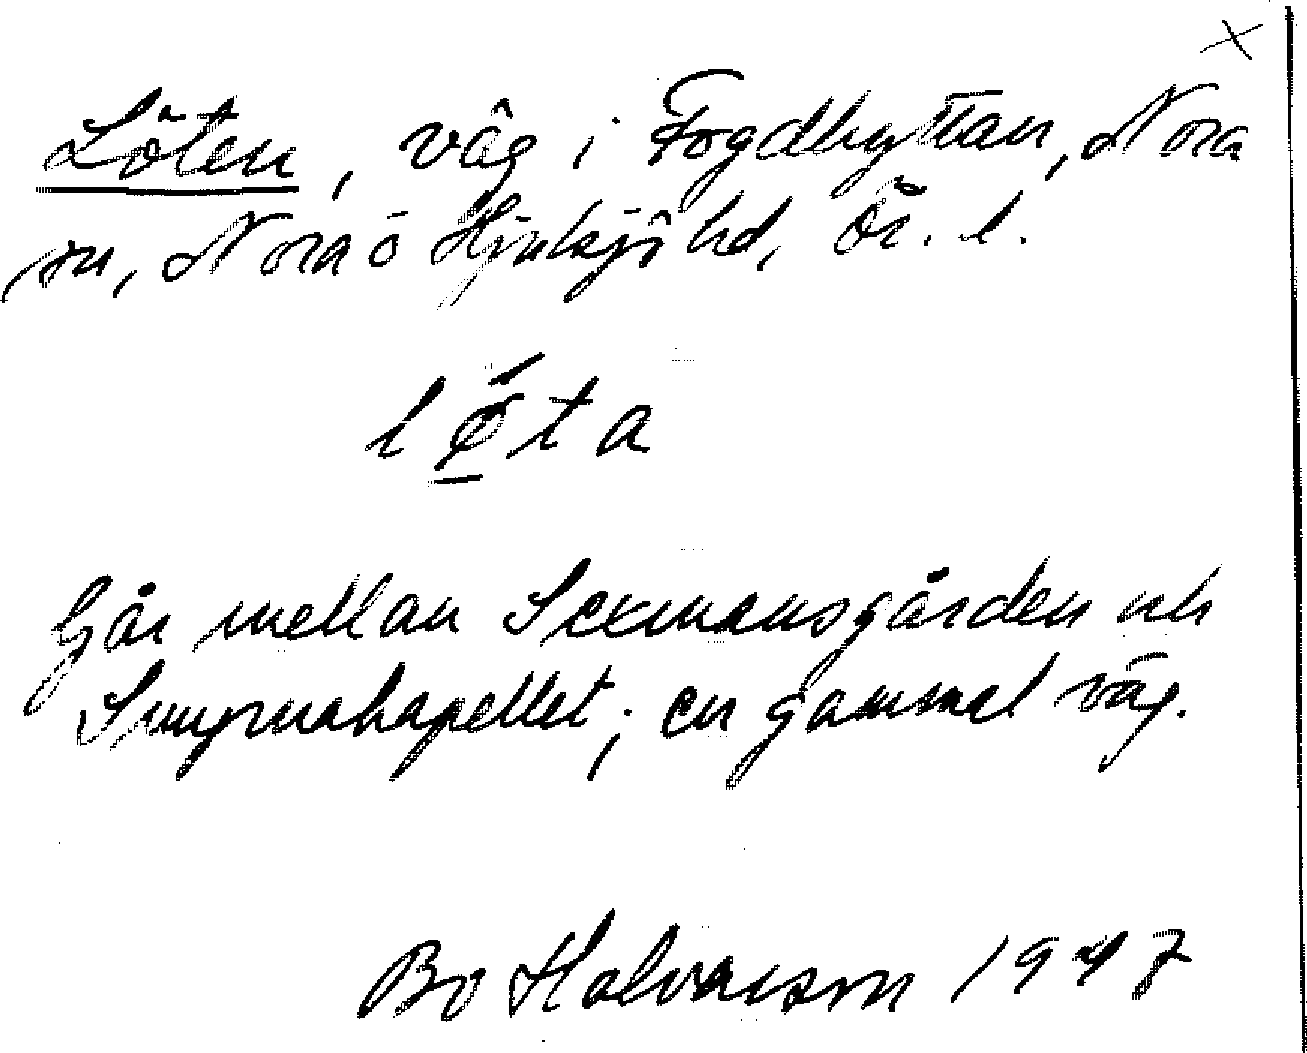 x
Löten, väg i Fogdhyttan, Nora
sn, Nora o Hjulsjö hd, Ör. l.
lǿ̱ta
Går mellan Sexmansgården och
Smyrnakapellet; en gammal väg.
Bo Halvarson 1947